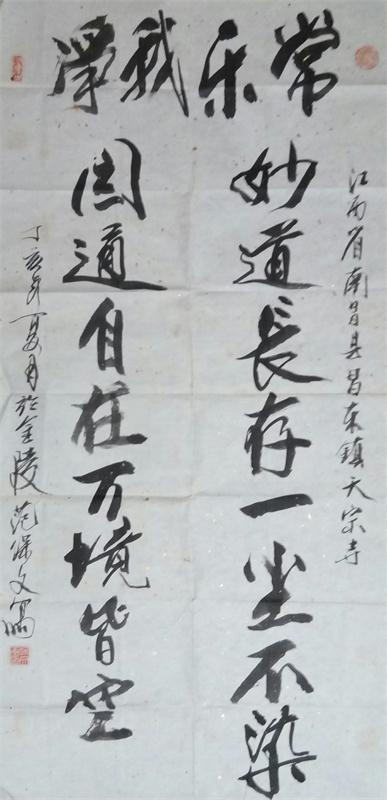 常乐我净
江西省南昌县昌东镇天宗寺
妙道長存一尘不染
圆通自在万境皆空
丁亥年夏月於金陵范保文寫